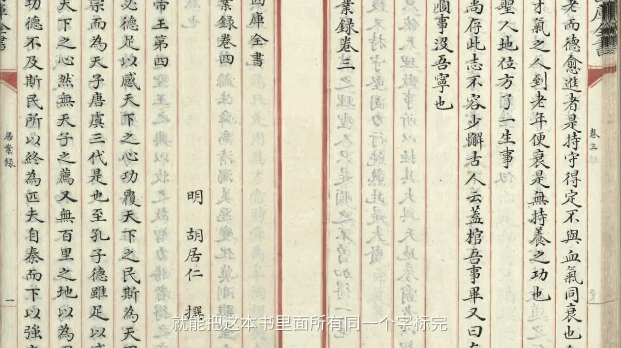 庫全書
卷三
老而德愈進者是持守得定不與血氣同衰也
才氣之人到老年便衰是無持養之功也
聖人地位方了一生事
尚存此志不容少懈古人云蓋棺吾事畢又曰
順事沒吾寧也
業錄卷三
四庫全書
業錄卷四
明 胡居仁 撰
帝王第四
必德足以感天下之心功覆天下之民斯為天
宗而為天子唐虞三代是也至孔子德雖足以
天下之心然無天子之薦又無百里之地以為
功德不及斯民所以終為匹夫自秦而下以強
居業錄
一
就能把这本书里面所有同一个字标完